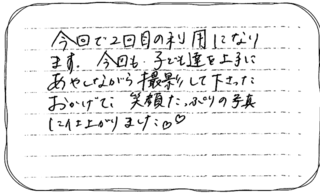 今回で2回目の利用になり
ます。今回も子ども達を上手に
あやしながら撮影して下さった
おかげで、笑顔たっぷりの写真
に仕上がりました♡♡